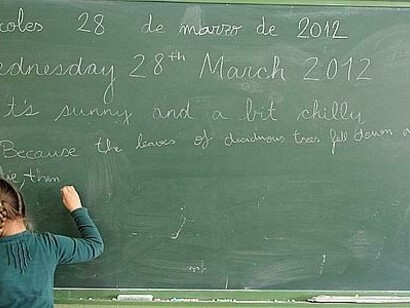 coles 28 de marzo de 2012
ednesday 28th March 2012
t's sunny and a bit chilly
Because the leaves of deciduous trees fall down a
die, then